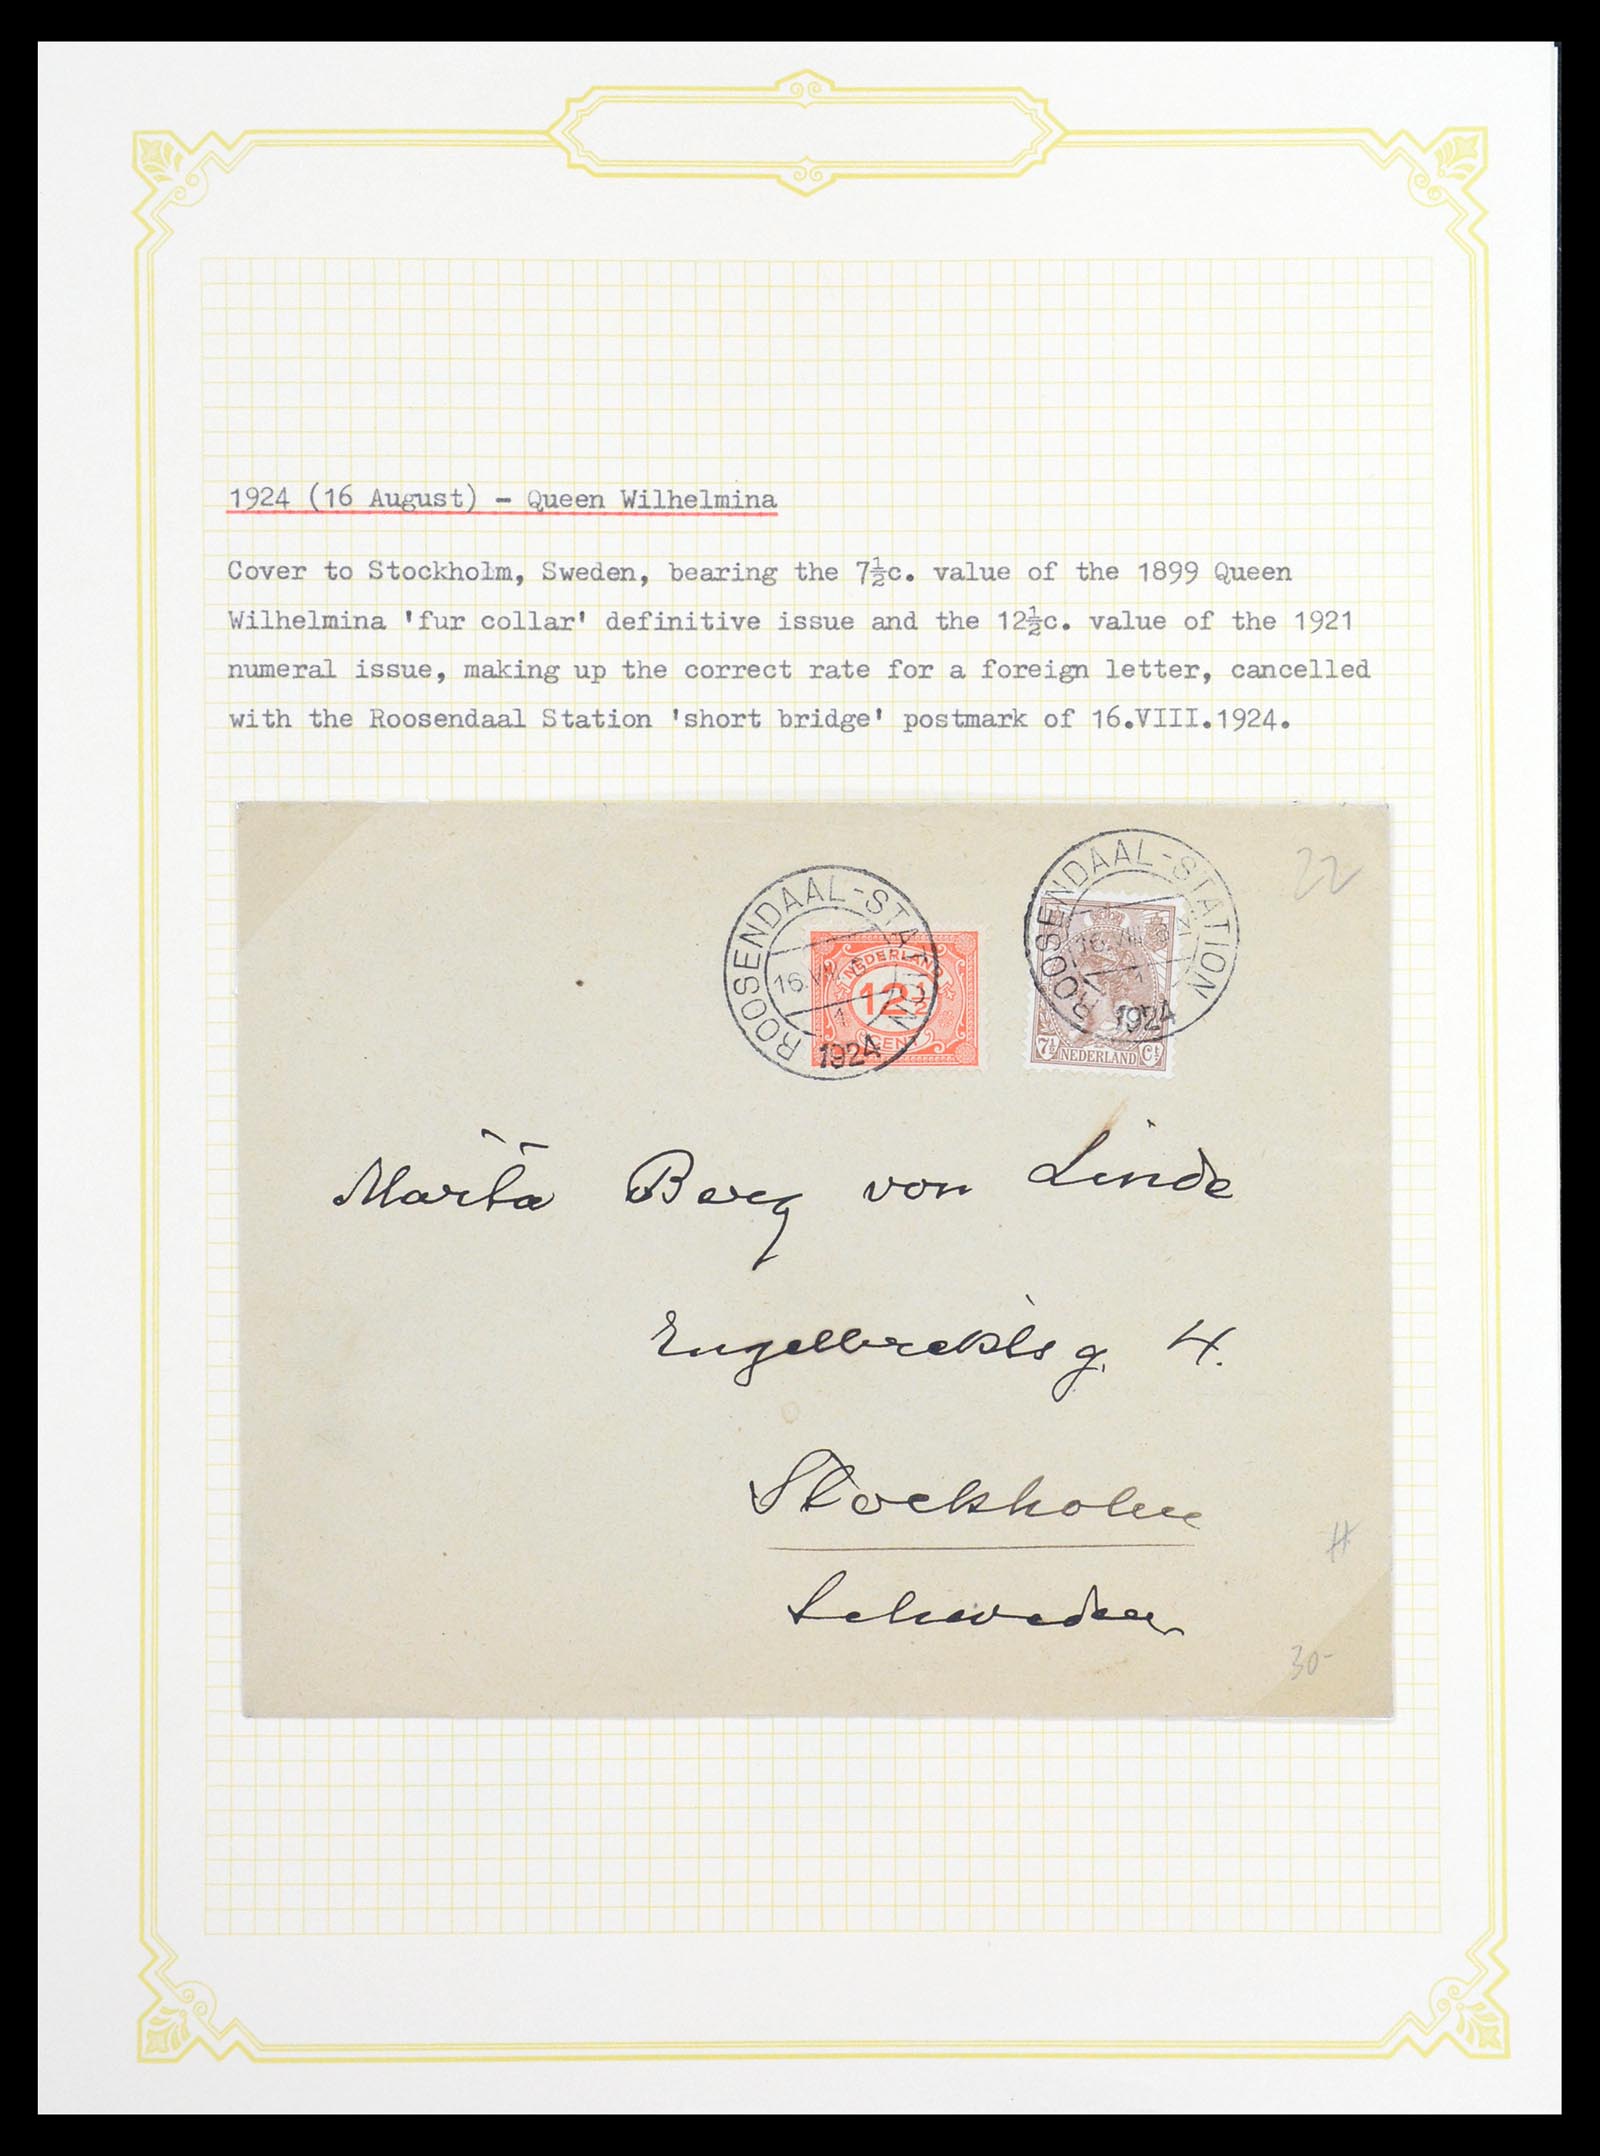 1924 (16 August) - Queen Wilhelmina
Cover to Stockholm, Sweden, bearing the 7½c. value of the 1899 Queen
Wilhelmina 'fur collar' definitive issue and the 12½c. value of the 1921
numeral issue, making up the correct rate for a foreign letter, cancelled
with the Roosendaal Station 'short bridge' postmark of 16.VIII.1924.
22
ROOSENDAAL-STATION
16.VIII
1
1924
NEDERLAND
12½
CENT
ROOSENDAAL-STATION
16.VIII
1
1924
7½ NEDERLAND Ct
Märta Berg von Linde
Engelbrektsg. 4.
Stockholm
Schweden
30-